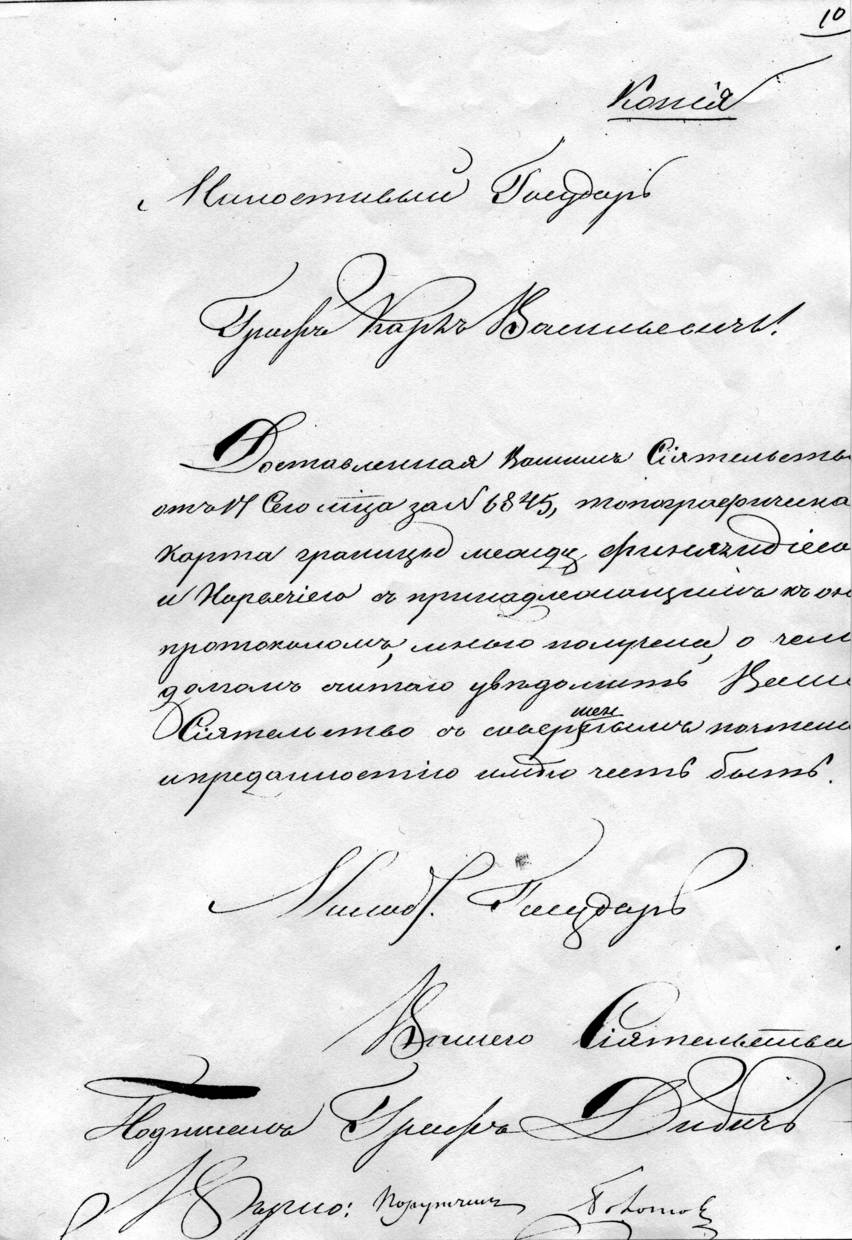 10
Копія
Милостивый Государь
Графъ Карлъ Васильевичъ!
Доставленная Вашимъ Сіятельств
отъ 17 Сего мѣца за N 6845, топографическа
карта границы между Финляндіею
и Норвегіею съ принадлежащимъ къ он
протоколомъ, мною получена, о чемъ
долгомъ считаю увѣдомить Ваше
Сіятельство съ совершеннымъ почтен
и преданностію имѣю честь быть.
Милов. Государь
Вашего Сіятельства
Подписалъ Графъ Дибичъ
Вѣрно: Поручикъ